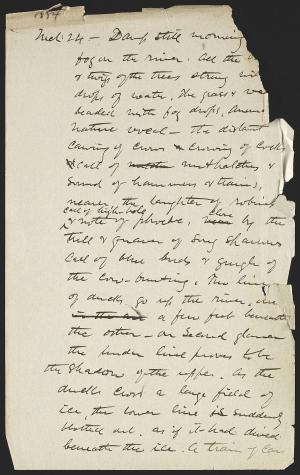 1884
Mch. 24 - Damp still morning
fog on the river. All the
& twigs of the trees strung with
drops of water. The grass &
beaded with fog drops.
nature vocal - the distant
cawing of crows & crowing of cocks
call of nuthatches &
sound of hammers & trains,
nearer the laughter of robins
call of high-hole
& note of phoebe, close by the
trill & quaver of song sparrows
call of blue birds & gurgle of
the cow-bunting. Two lines
of ducks go up the river, one
in the air a few feet beneath
the other - on second glance
the under line proves to be
the shadow of the upper. As the
ducks cross a large field of
ice, the lower line is suddenly
blotted out, as if it had dived
beneath the ice. A train of